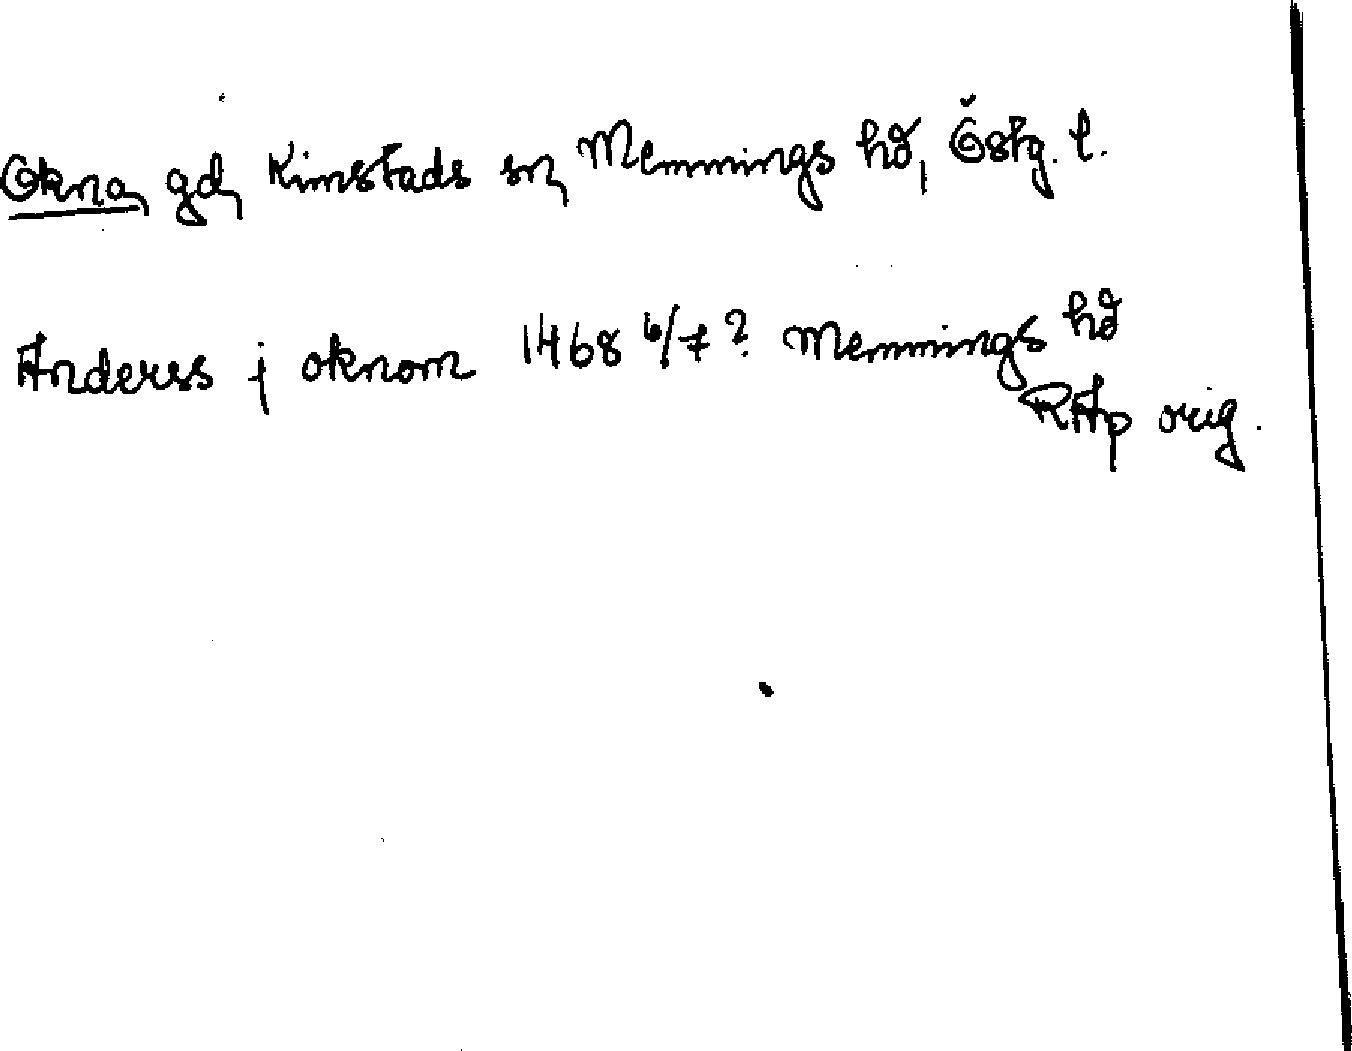 Okna, gd, Kimstads sn, Memmings hd, Östg. l.
Anderss j oknom 1468 6/7? Memmings hd
RAp orig.